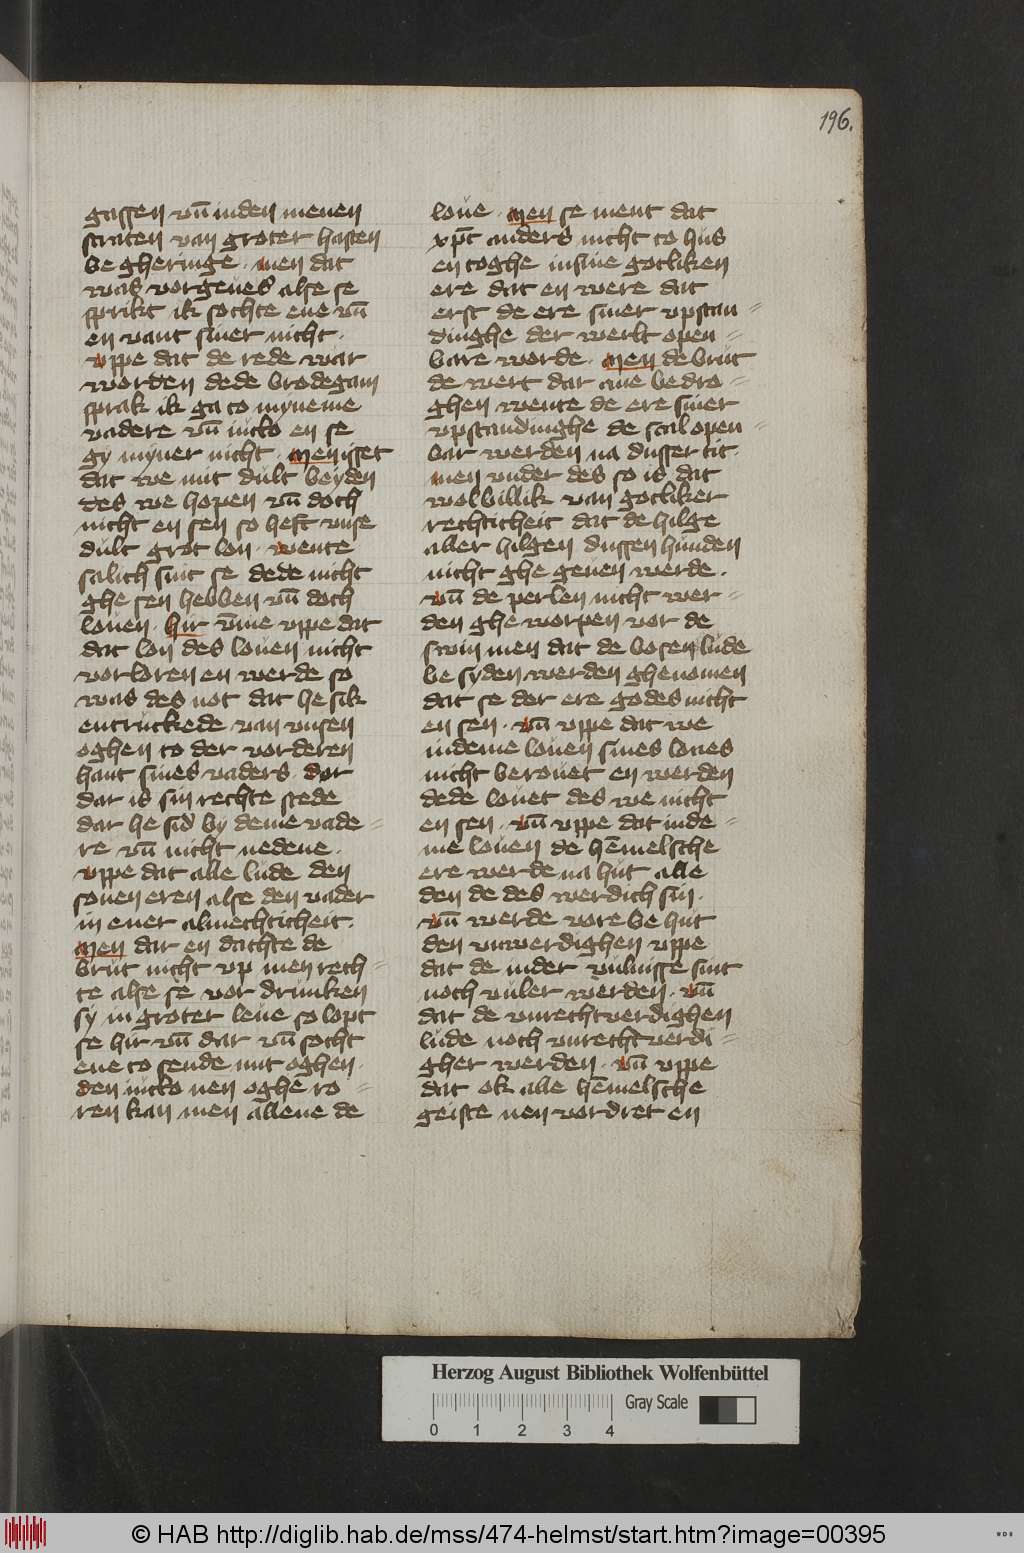 196.
gassen vn̄ in den menen
straten van groter hasten
be gheringe · men dat
was vorgeues alse se
sprikt ik sochte ene vn̄
en vant siner nicht ·
vppe dat de rede war
worden dede brodegam
sprak ik ga to myneme
vadere vn̄ nicko en se
gy myner nicht · Men isset
dat we mit dult beyden
des we hopen vn̄ doch
nicht en sen so heft vnse
dult grot lon · wente
salich sint se dede nicht
ghe sen hebben vn̄ doch
louen · hir v̄me vppe dat
dat lon des louen nicht
vorloren en werde so
was des not dat he sik
entruckede van vnsen
oghen to der vorderen
hant sines vaders · dor
dar is sin rechte stede
dar he sid by deme vade=
re vn̄ nicht nedene ·
vppe dat alle lude den
sonen eren alse den vader
in ener almechticheit ·
Men dar en dachte de
brut nicht vp men rech=
te alse se vor drunken
sy in groter leue so lopt
se hir vn̄ dar vn̄ socht
ene to sende mit oghen ·
den nicko nen oghe ro=
ren kan men allene de
loue · Men se ment dat
xpc̄ anders nicht to hus
en toghe in sine gotliken
ere dat en were dat
erst de ere siner vpstan=
dinghe der werlt open=
bare worde · Men de brut
de wert dar ane bedro=
ghen wente de ere siner
vpstandinghe de scal open=
bar werden na dusser tit ·
men vnder des so is dat
wol billik van gotliker
rechticheit dat de hilge
aller hilgen dussen hunden
nicht ghe geuen werde ·
vn̄ de perlen nicht wer=
den ghe worpen vor de
swin men dat de bosen lude
be syden werden ghenomen
dat se der ere godes nicht
en sen · vn̄ vppe dat we
in deme louen sines lones
nicht berouet en werden
dede louet des we nicht
en sen · vn̄ vppe dat in de=
me louen de hēmelsche
ere werde na hut alle
den de des werdich sin ·
vn̄ werde vore be hut
den vnwerdighen vppe
dat de in der vulnisse sint
noch vuler werden · vn̄
dat de vnrechtverdighen
lude noch vnrechtverdi=
gher werden · vn̄ vppe
dat ok alle hēmelsche
geiste nen vordret en
Herzog August Bibliothek Wolfenbüttel
Gray Scale
0 1 2 3 4
© HAB http://diglib.hab.de/mss/474-helmst/start.htm?image=00395